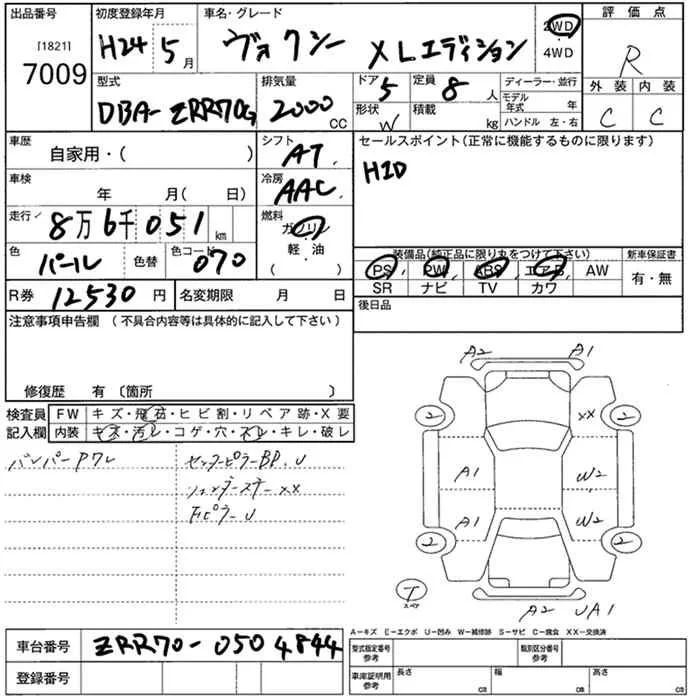 出品番号 初度登録年月 車名・グレード 2WD 評価点
[1821] 7009 H24 5月 ヴォクシー XLエディション 4WD R
型式 排気量 ドア 5 定員 8人 ディーラー・並行 外装 内装
DBA-ZRR70G 2000cc 形状 W 積載 kg モデル年式 年 C C
ハンドル 左・右
車歴 自家用・( ) シフト AT. セールスポイント(正常に機能するものに限ります)
車検 年 月(日) 冷房 AAC. HID
走行✓ 8万6千051km 燃料 ガソリン
色 パール 色替 色コード 070 軽・油 ( )
装備品(純正品に限り丸をつけて下さい) 新車保証書
PS PW ABS エアB AW 有・無
SR ナビ TV カワ
R券 12530円 名変期限 月 日 後日品
注意事項申告欄(不具合内容等は具体的に記入して下さい)
修復歴 有〔箇所 〕
検査員記入欄 FW キズ・飛石・ヒビ割・リペア跡・X要
内装 キズ・汚レ・コゲ・穴・スレ・キレ・破レ
バンパーPワレ センターピラーBP.U
XX
ピラーU
A2 A1
2 XX 2
A1 W2
A1 W2
2 2
T スペア
A2 UA1
A-キズ E-エクボ U-凹み W-補修跡 S-サビ C-腐食 XX-交換済
車台番号 ZRR70-0504844
登録番号
型式指定番号 参考 類別区分番号 参考
車庫証明用 参考 長さ cm 幅 cm 高さ cm